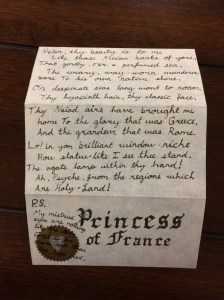 Helen, thy beauty is to me
Like those Nicéan barks of yore,
That gently, o'er a perfumed sea,
The weary, way-worn wanderer
bore To his own native shore.
On desperate seas long wont to roam,
Thy hyacinth hair, thy classic face,
Thy Naiad airs have brought me
home To the glory that was Greece,
And the grandeur that was Rome.
Lo! in yon brilliant window-niche
How statue-like I see thee stand,
The agate lamp within thy hand!
Ah, Psyche, from the regions which
Are Holy-Land!
P.S.
My
are
Princess
of France